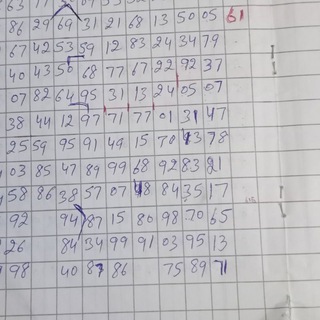 86 29 69 31 21 68 13 50 05 61
67 42 53 59 12 83 24 34 79
40 43 50 68 77 67 22 92 37
07 82 64 95 31 13 24 05 07
38 44 12 97 71 77 01 31 47
25 59 95 91 49 15 70 43 78
03 85 47 89 99 68 92 83 21
58 86 38 57 07 48 84 35 17
92 94 87 15 80 98 70 65
26 84 34 99 91 03 95 13
98 40 87 86 75 89 71